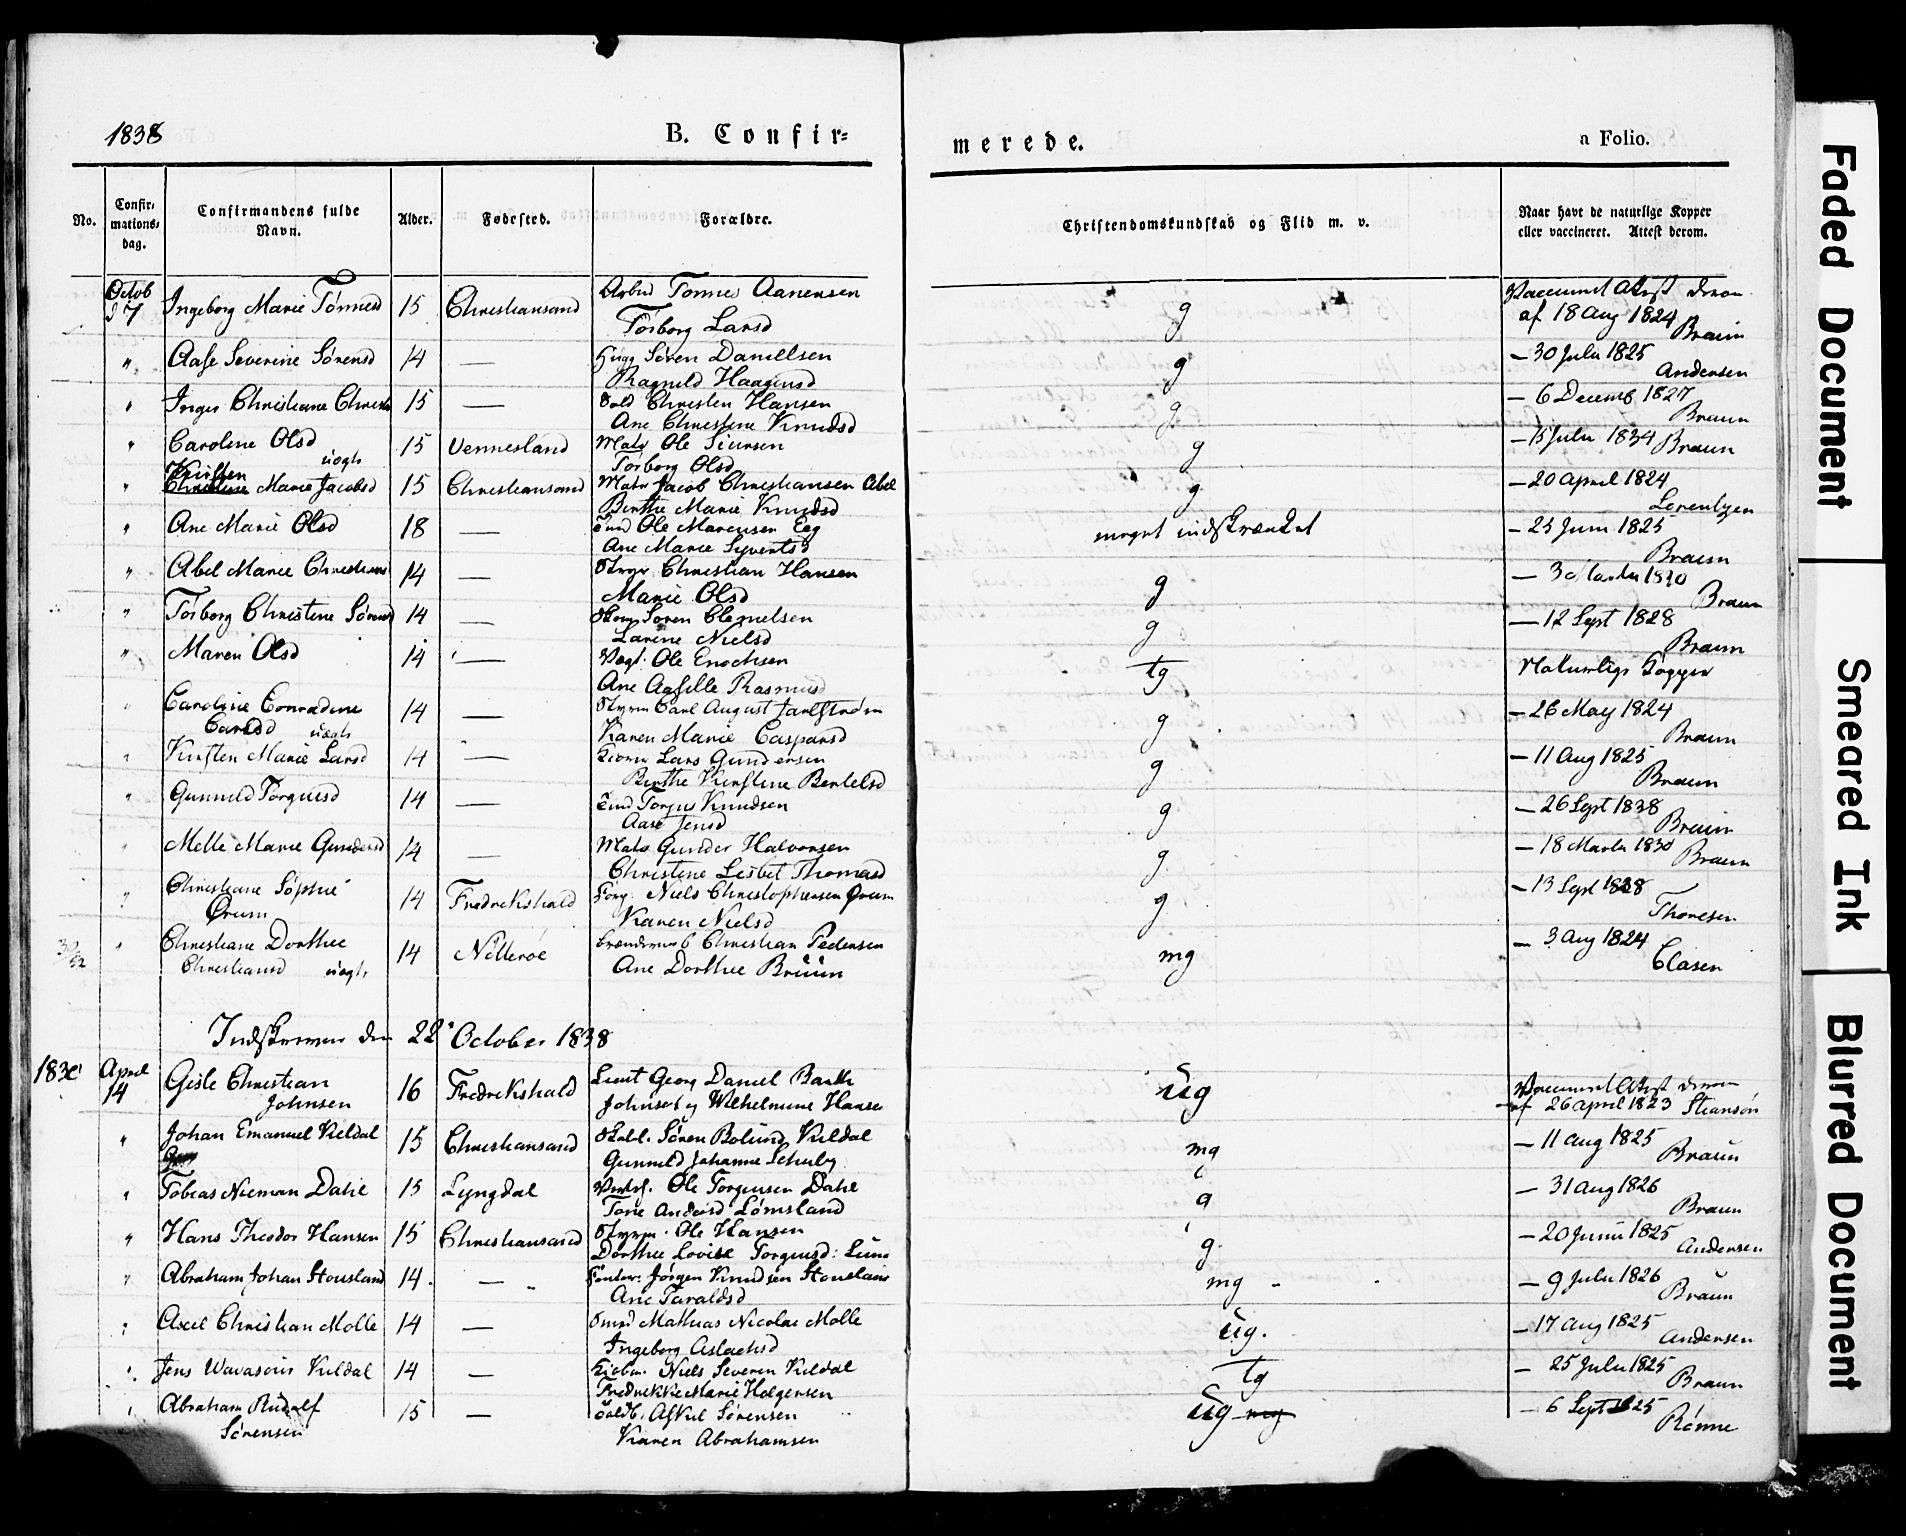 1838
B. Confir=
merede.
a Folio.
No.
Confir=
mations=
dag.
Confirmandens fulde
Navn.
Alder.
Fødested.
Forældre.
Christendomskundskab og Flid m. v.
Naar havt de naturlige Kopper
eller vaccineret. Attest derom.
Octob
7
Ingeborg Marie Tønnesd
15
Christiansand
Tønnes Aanensen
Torborg Larsd
g
af 18 Aug 1824
Braun
" Aase Severine Sørensd
14
—
Søren Danielsen
Ragnild Haagensd
g
— 30 Julii 1825
Andersen
" Inger Christiane
15
—
Christen Hansen
Ane Christine Knudsd
g
— 6 Decemb 1827
Braun
" Caroline Olsd
uægte
15
Vennesland
Matr Ole Siursen
Torborg Olsd
g
— 15 Julii 1834
Braun
" Kirsten
Marie Jacobsd
15
Christiansand
Matr Jacob Christiansen Abel
Berthe Marie Knudsd
g
— 20 April 1824
" Ane Marie Olsd
18
—
Ole Marcusen Eeg
Ane Marie Syvertsd
meget indskrænket
— 25 Juni 1825
Braun
" Abel Marie
14
—
Christian Hansen
Marie Olsd
g
— 3
Braun
" Torborg Christine
14
—
Søren Clemetsen
Larine Nielsd
g
— 12 Sept 1828
Braun
" Maren Olsd
14
—
Vægt. Ole Enochsen
Ane
tg
Naturlige Kopper
" Caroline Conradine
Carlsd uægte
14
—
Styrm Carl August
Karen Marie Caspersd
g
— 26 May 1824
Braun
" Kirsten Marie Larsd
14
—
Lars Gundersen
Berthe Kirstine Bertelsd
g
— 11 Aug 1825
Braun
" Gunnild Torgusd
14
—
Torjus Knudsen
Aase Jensd
g
— 26 Sept 1838
Braun
" Melle Marie Gundersd
14
—
Matr Gunder Halvorsen
Christine Lisbet Thomasd
g
— 18 Marts 1830
Braun
" Christiane Sophie
Ørum
14
Fredrikshald
Niels Christophersen Ørum
Karen Nielsd
g
— 13 Sept
Thoresen
" Christiane Dorthee
Christiansd uægte
14
Christian Pedersen
Ane Dorthee Brüün
mg
— 3 Aug 1824
Clasen
Indskreven den 22 October 1838
April
14
Gisle Christian
Johnsen
16
Fredrikshald
Lieut Georg Daniel Barth
Johnsen og Wilhelmine Hansen
ug
af 26 April 1823
" Johan Emanuel Kieldal
15
Christiansand
Søren Kieldal
Gunnild Johanne Schuby
mg
— 11 Aug 1825
Braun
" Tobias Nieman Dahl
15
Lyngdal
Ole Torgersen Dahl
Tone Andersd Lømsland
g
— 31 Aug 1826
Braun
" Hans Theodor Hansen
15
Christiansand
Styrm. Ole Hansen
Dorthee Lovise
g
— 20 Junii 1825
Andersen
" Abraham Johan Stousland
14
—
Jørgen Knudsen Stousland
Ane Taraldsd
mg
— 9 Julii 1826
Braun
" Axel Christian Molle
14
—
Mathias Nicolai Molle
Ingeborg Aslachsd
ug.
— 17 Aug 1825
Andersen
" Jens Wavasour Kieldal
14
—
Niels Severin Kieldal
Fredrikke Marie Holgersen
tg
— 25 Julii 1825
Braun
" Abraham Rudolf
Sørensen
15
—
Sørensen
Karen Abrahamsen
ug mg
— 6 Sept 1825
Rønne
Faded Document
Smeared Ink
Blurred Document